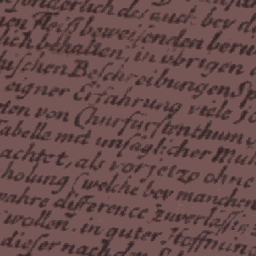 esonderlich des auch bey d
en fleiß beweisenden beru
lich behalten, in übrigen
schen Beschreibungen Sp
eigner Erfahrung viele
ten von Churfürstenthum
Tabelle mit unsäglicher Müh
achtet, als vorjetzo ohne
holung (welche bey manchen
wahre difference zuverläßig
wollen, in guter Hoffnung
dieser nach den